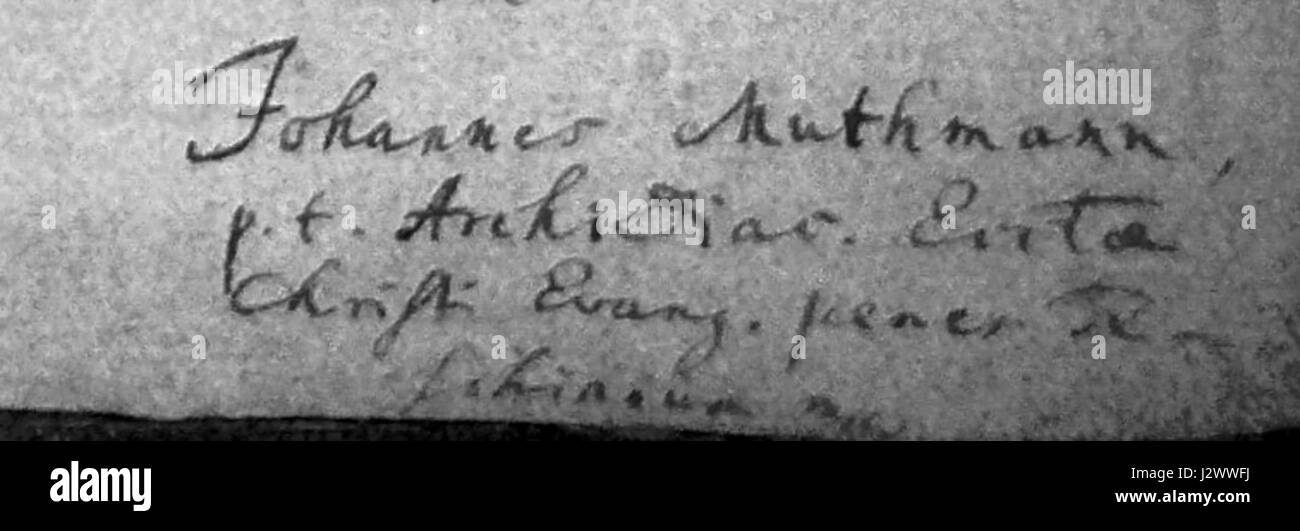 Johannes Muthmann,
p.t. Archidiac. Eccľae
Christi Evang. penes Te-
schinum
alamy stock photo
J2WWFJ
www.alamy.com